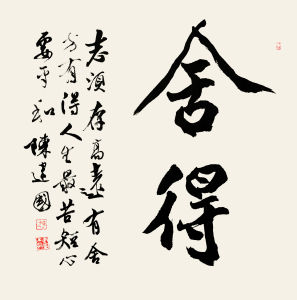 舍得
志須存高遠有舍
方有得人生最苦短心
要平和陳建國